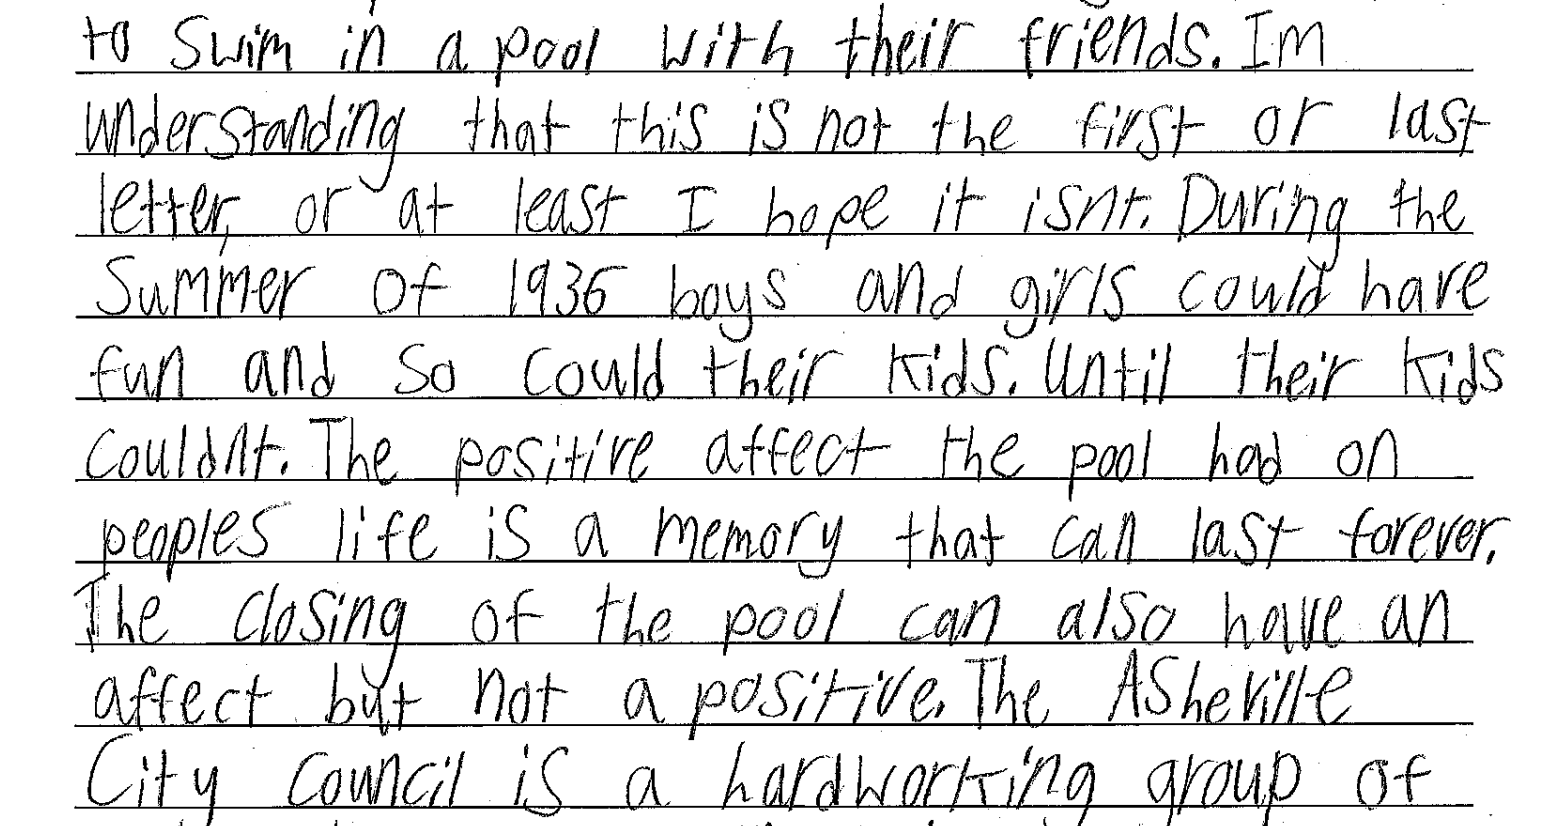 to swim in a pool with their friends. Im
understanding that this is not the first or last
letter, or at least I hope it isnt. During the
Summer of 1936 boys and girls could have
fun and so could their kids. Until their kids
couldnt. The positive affect the pool had on
peoples life is a memory that can last forever.
The closing of the pool can also have an
affect but not a positive. The Asheville
City Council is a hardworking group of